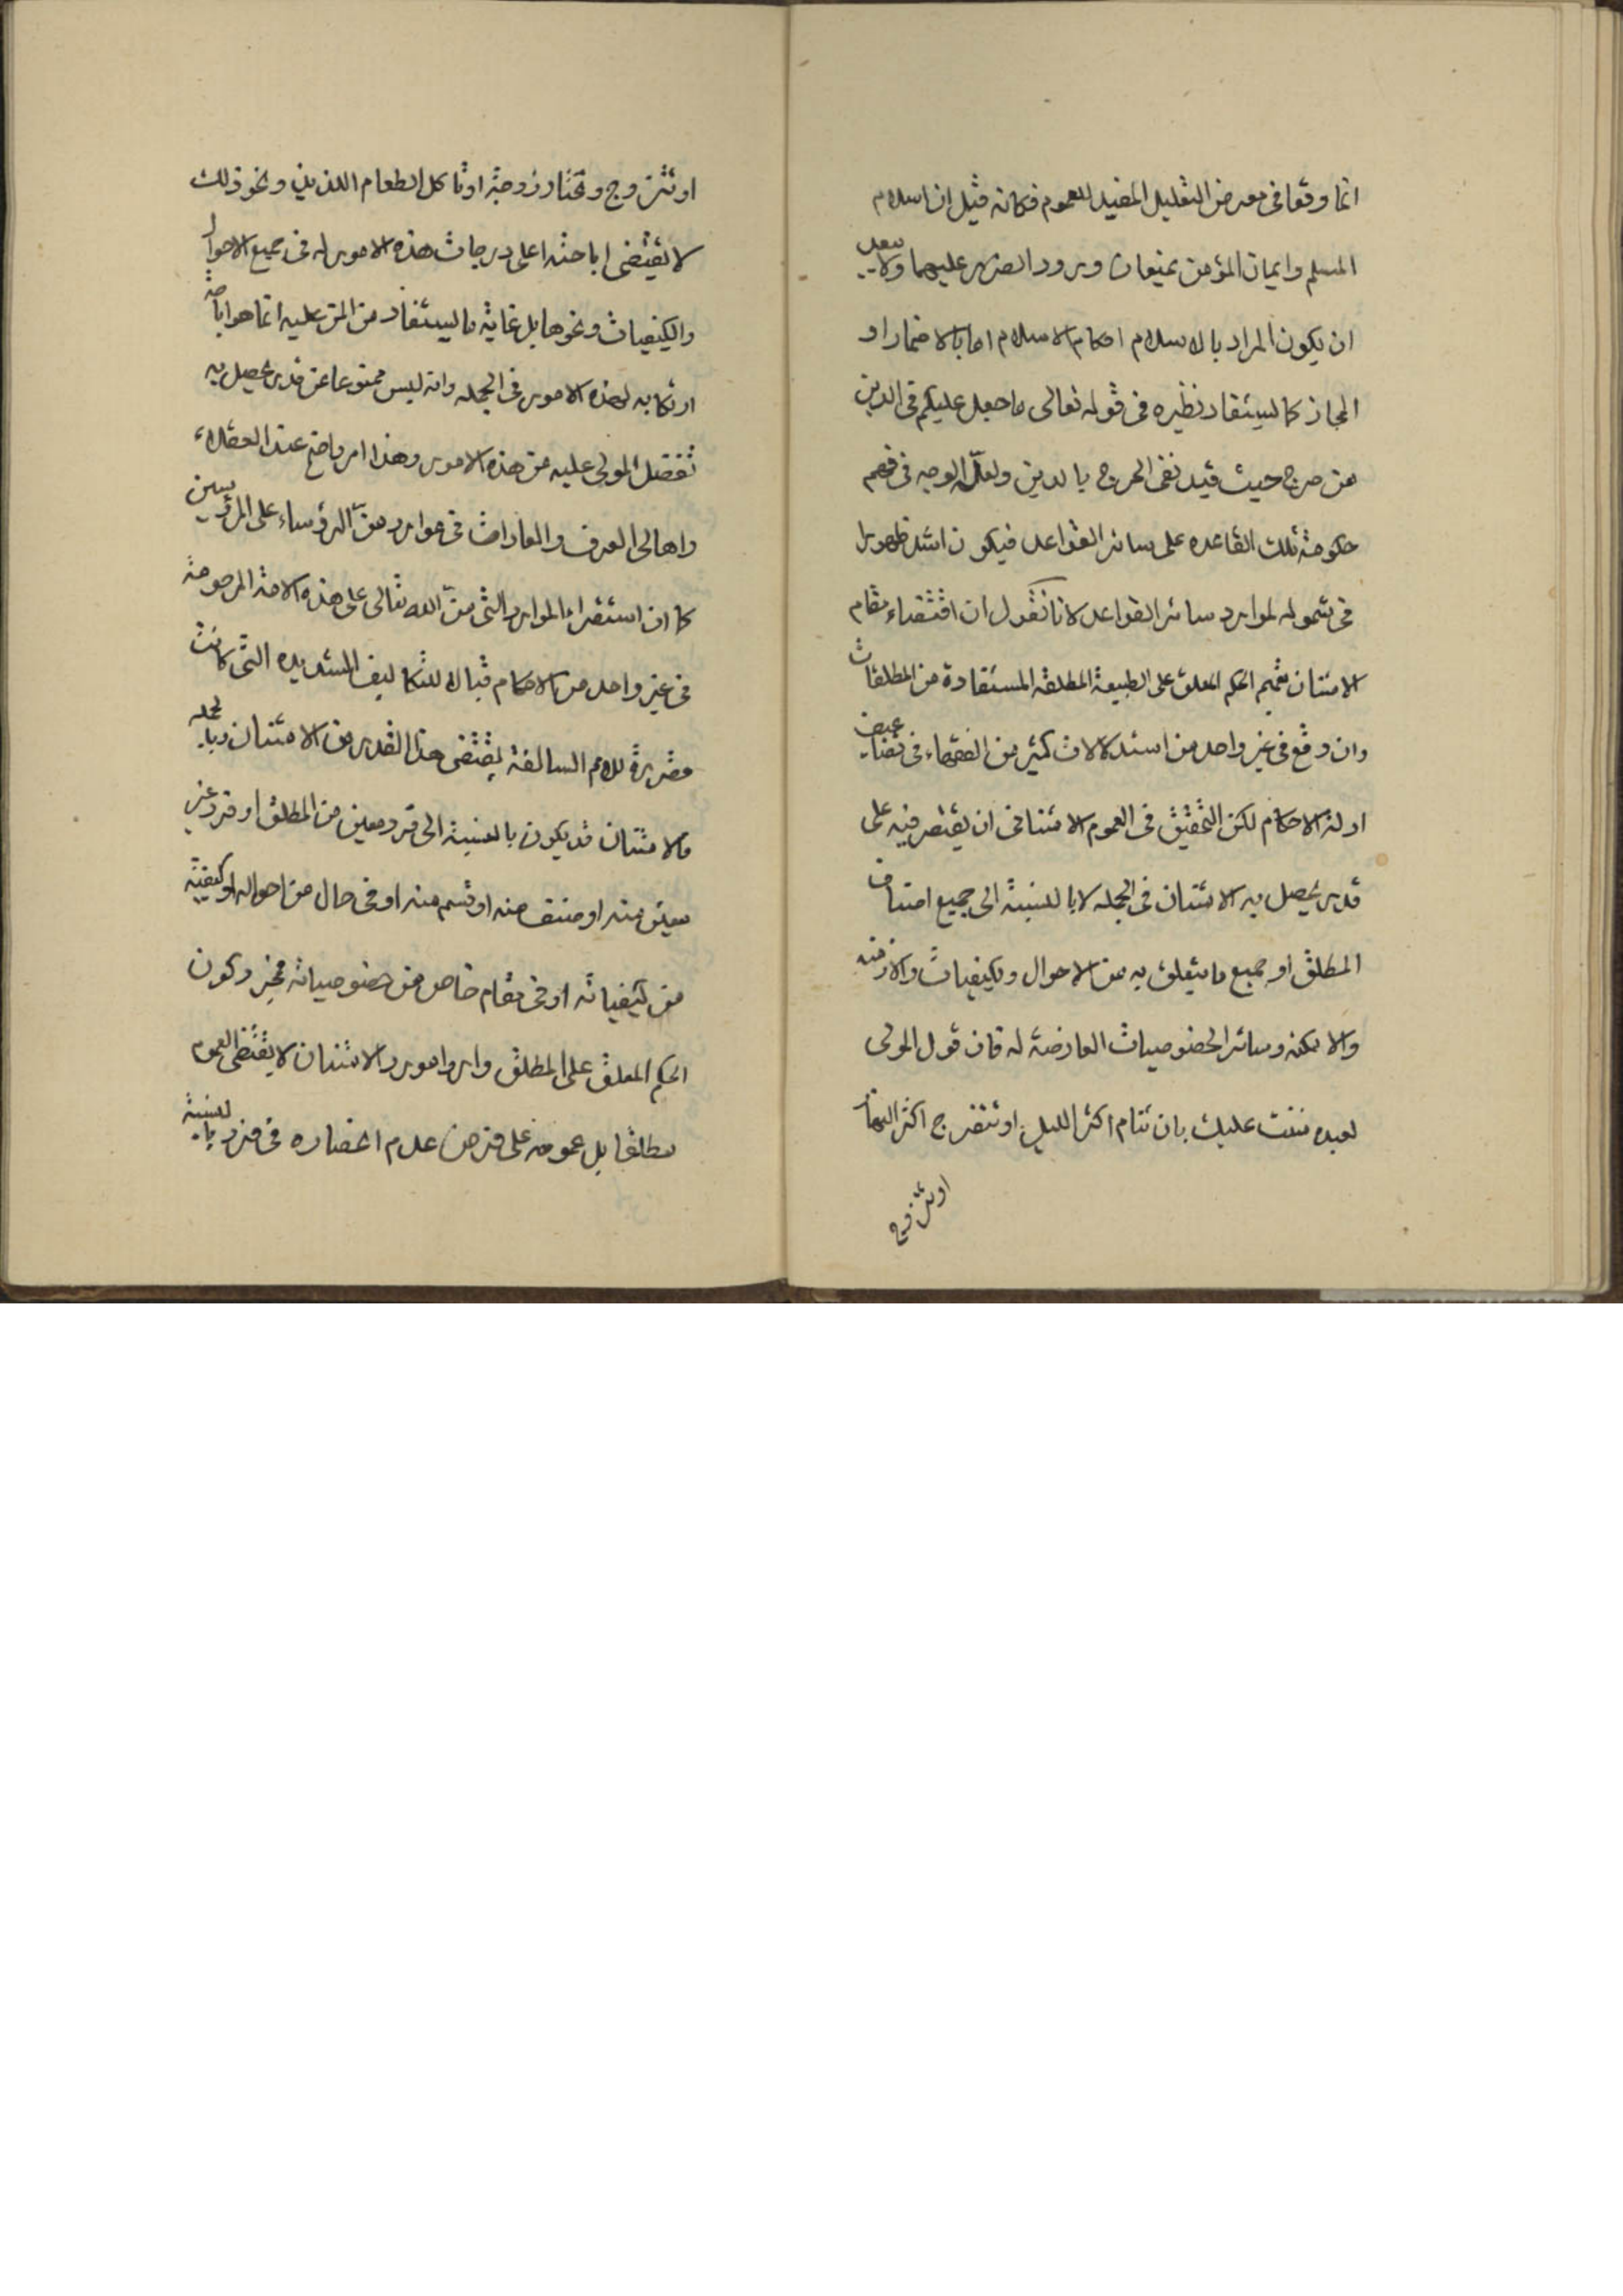 انما وقعا فى معرض التعليل المفيد للعموم فكانه قيل ان اسلام
المسلم وايمان المؤمن يمنعان ورود الضرر عليهما ولا يبعد
ان يكون المراد بالاسلام احكام الاسلام اما بالاضمار او
المجاز كما يستفاد نظيره فى قوله تعالى ما جعل عليكم فى الدين
من حرج حيث قيد نفى الحرج بالدين ولعله الوجه فى فهم
حكومة تلك القاعده على سائر القواعد فيكون اشد ظهورا
فى شموله لموارد سائر القواعد لانا نقول ان اقتضاء مقام
الامتنان تعميم الحكم المعلق على الطبيعة المطلقة المستفادة من المطلقات
وان وقع فى غير واحد من استدلالات كثير من الفقهاء فى تضاعيف
ادلة الاحكام لكن التحقيق فى العموم الامتنانى ان يقتصر فيه على
قدر يحصل به الامتنان فى الجملة لا بالنسبة الى جميع اصناف
المطلق او جميع ما يتعلق به من الاحوال وكيفيات والازمنه
والامكنه وسائر الخصوصيات العارضة له فان قول المولى
لعبده مننت عليك بان تنام اكثر الليل او تتفرج اكثر النهار
او تتزوج
او تتزوج وتختار زوجة او تاكل الطعام اللذيذ ونحو ذلك
لا يقتضى اباحته اعلى درجات هذه الامور له فى جميع الاحوال
والكيفيات ونحوها بل غاية ما يستفاد من المن عليه انما هو اباحة
ارتكابه لهذه الامور فى الجمله وانه ليس ممنوعا عن قدر يحصل به
تفضل المولى عليه من هذه الامور وهذا امر واضح عند العقلاء
واهالى العرف والعادات فى موارد من الرؤساء على المرؤسين
كما ان استقراء الموارد التى من الله تعالى على هذه الامة المرحومة
فى غير واحد من الاحكام قبالا للتكاليف الشديده التى كانت
مقررة للامم السالفة يقتضى هذا القدر من الامتنان وبالجمله
فالامتنان قد يكون بالنسبة الى فرد معين من المطلق او فرد غير
معين منه او صنف منه او قسم منه او فى حال من احواله او كيفية
من كيفياته او فى مقام خاص من خصوصياته فمجرد كون
الحكم المعلق على المطلق واردا مورد الامتنان لا يقتضى العموم
مطلقا بل عمومه على فرض عدم انحصاره فى فرد بالنسبة